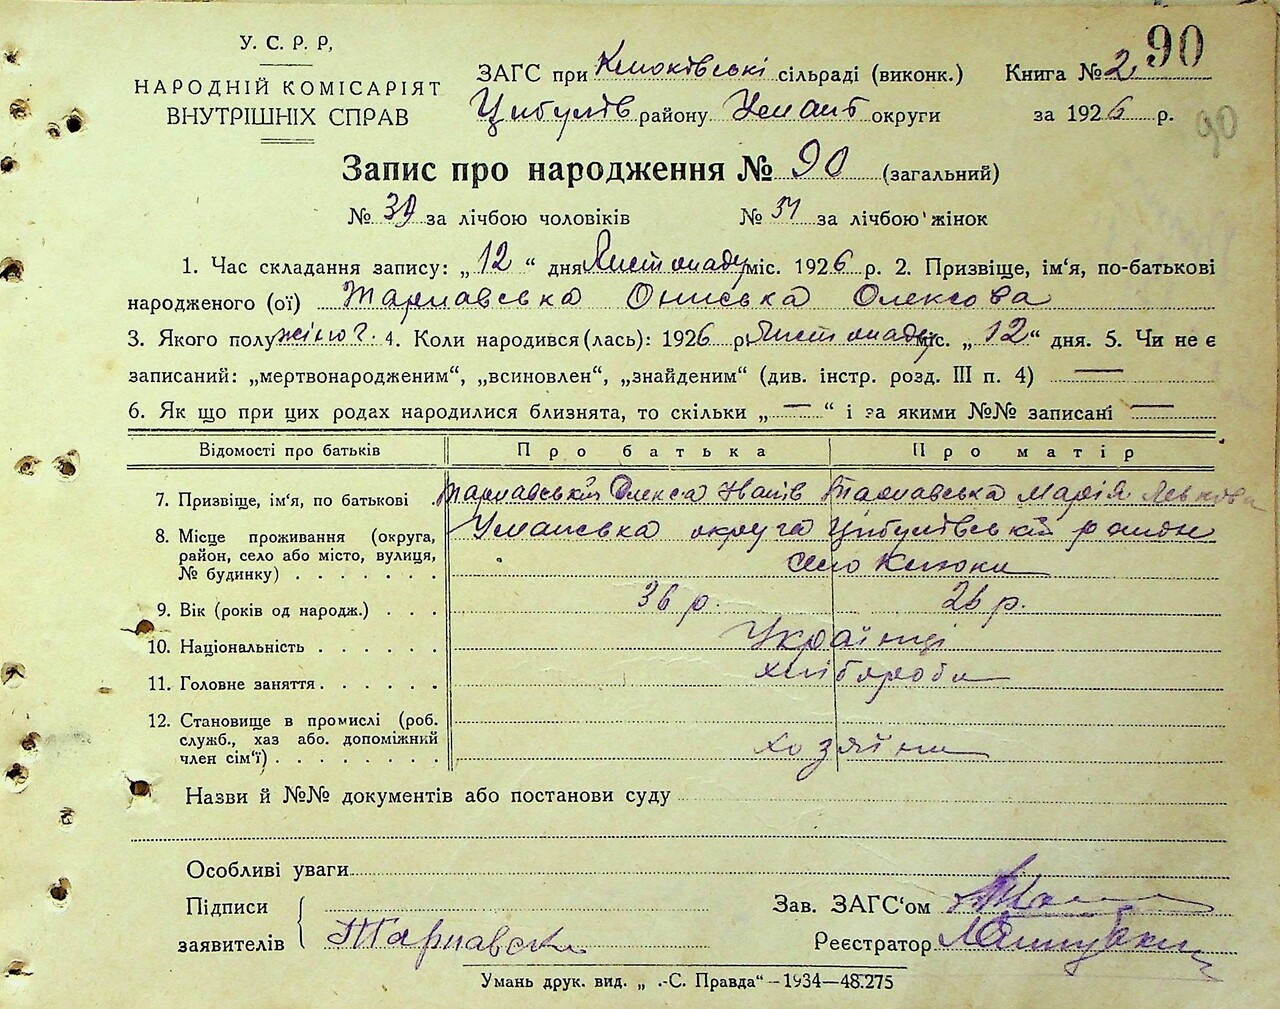 У. С. Р. Р,
НАРОДНІЙ КОМІСАРІЯТ
ВНУТРІШНІХ СПРАВ
ЗАГС при Клюківські сільраді (виконк.)
Книга № 2.
90
Цибулів району Уманб округи
за 1926 р.
90
Запис про народження № 90 (загальний)
№ 39 за лічбою чоловіків № 51 за лічбою жінок
1. Час складання запису: „12“ дня Листопаду міс. 1926 р. 2. Призвіще, ім'я, по-батькові
народженого (ої) Тарнавська Ониська Олексова
3. Якого полу жіноч. 4. Коли народився (лась): 1926 р. Листопаду міс. „12“ дня. 5. Чи не є
записаний: „мертвонародженим“, „всиновлен“, „знайденим“ (див. інстр. розд. III п. 4) —
6. Як що при цих родах народилися близнята, то скільки „—“ і за якими №№ записані —
Відомості про батьків Про батька Про матір
7. Призвіще, ім'я, по батькові . Тарнавський Олекса Іванів Тарнавська Марія Левкова
8. Місце проживання (округа,
район, село або місто, вулиця,
№ будинку) . . . . . . .
Уманська округа Цибулівський район
село Клюки
9. Вік (років од народж.) . . . 36 р. 26 р.
10. Національність . . . . . . Українці
11. Головне заняття . . . . . . хлібороби
12. Становище в промислі (роб.
служб., хаз або. допоміжний
член сім'ї) . . . . . . . . хозяїни
Назви й №№ документів або постанови суду
Особливі уваги
Підписи
заявителів Тарнавськ
Зав. ЗАГС'ом
Реєстратор
Умань друк. вид. „ .-С. Правда“ –1934—48.275